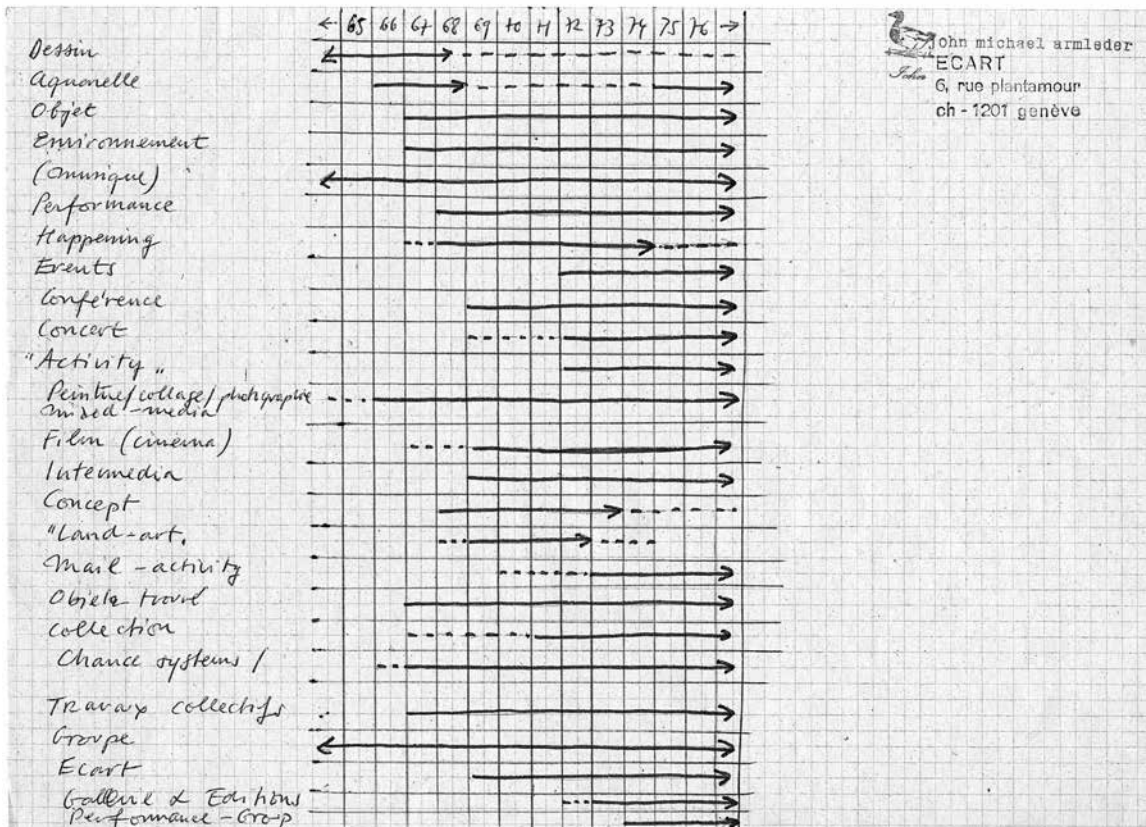 ← 65 66 67 68 69 70 71 72 73 74 75 76 →
john michael armleder
ECART
John
6, rue plantamour
ch - 1201 genève
Dessin
Aquarelle
Objet
Environnement
(musique)
Performance
Happening
Events
Conférence
Concert
"Activity"
Peinture/collage/photographie
mixed-media
Film (cinema)
Intermedia
Concept
"Land-art"
Mail-activity
Objets trouvé
Collection
Chance systems /
Travaux collectifs
Groupe
Ecart
Gallerie & Editions
Performance-Group